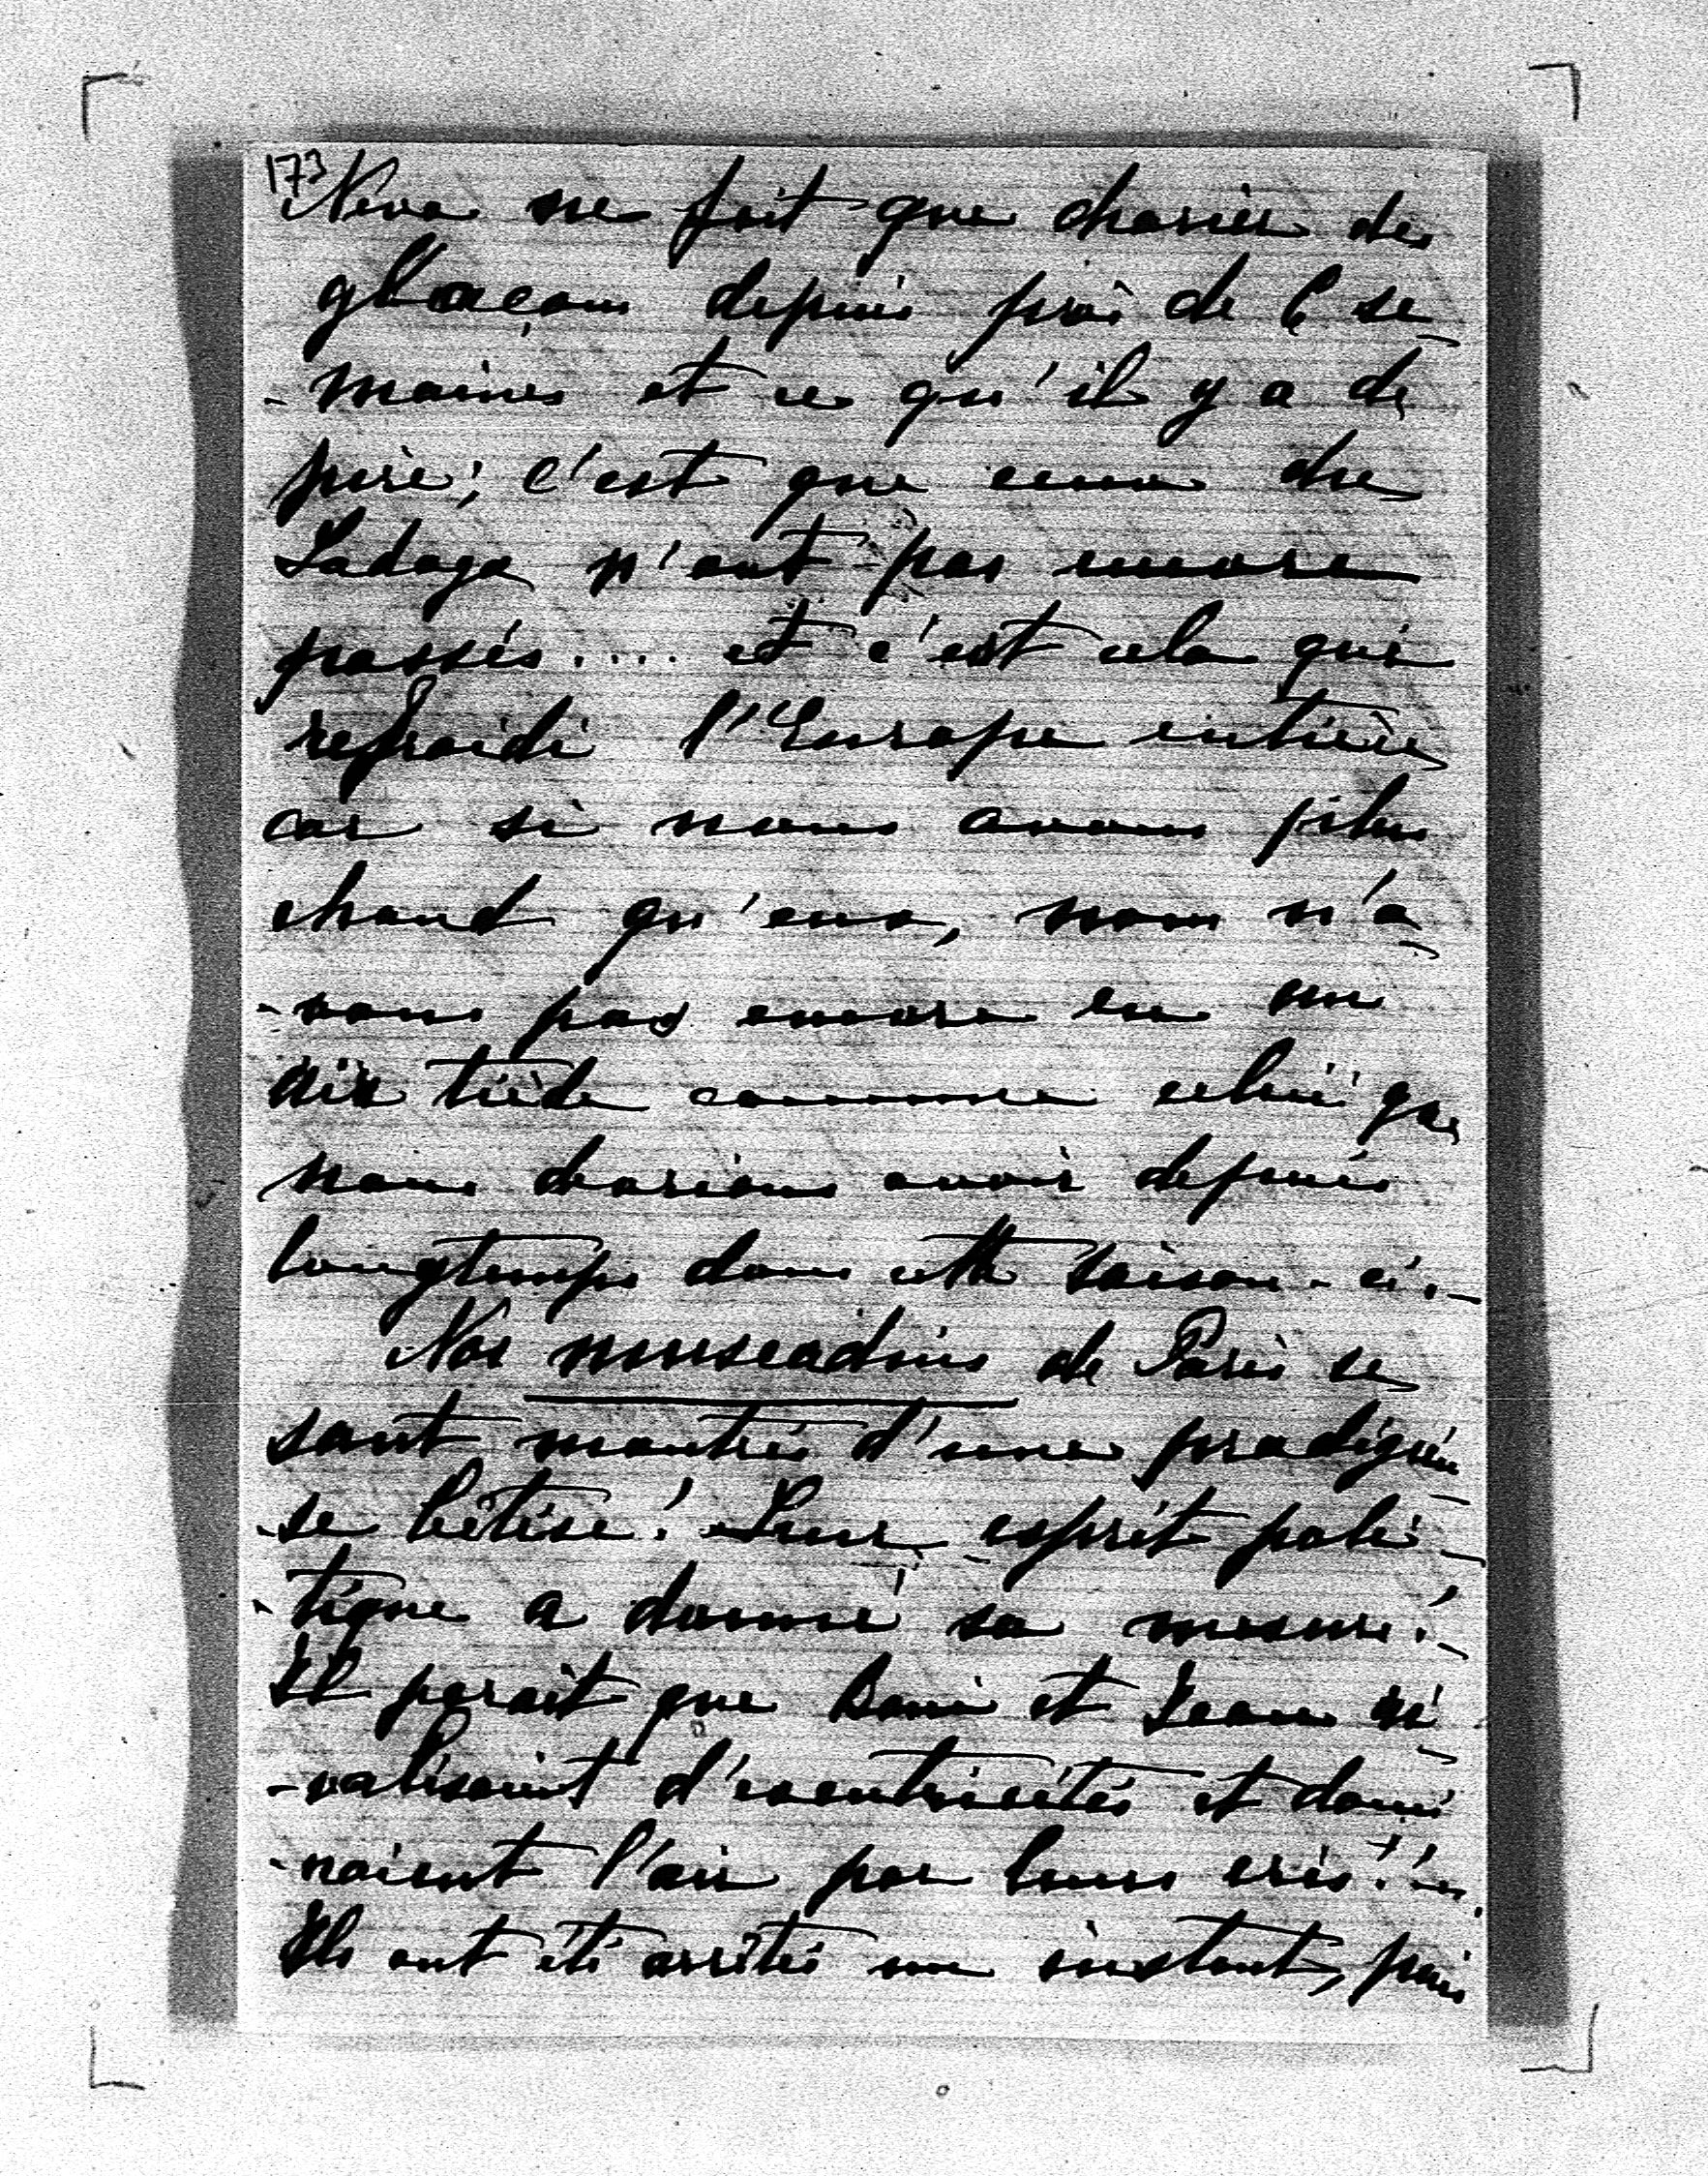 173
Néva ne fait que charier des
glaçons depuis près de 6 se
-maines et ce qu'il y a de
pire; c'est que ceux du
Ladoga n'ont pas encore
passés.... et c'est cela qui
refroidi l'Europe entière
car si nous avons plus
chaud qu'eux, nous n'a
-vons pas encore eu un
air tiède comme celui que
nous devrions avoir depuis
longtemps dans cette saison-ci.
Nos muscadins de Paris se
sont montrés d'une prodigieu
-se bêtise! Leur esprit poli
-tique a donné sa mesure!
Il parait que Boni et Jean ri
-valisaient d'excentricités et domi
-naient l'air par leurs cris!!
Ils ont été arrêtés un instant, puis